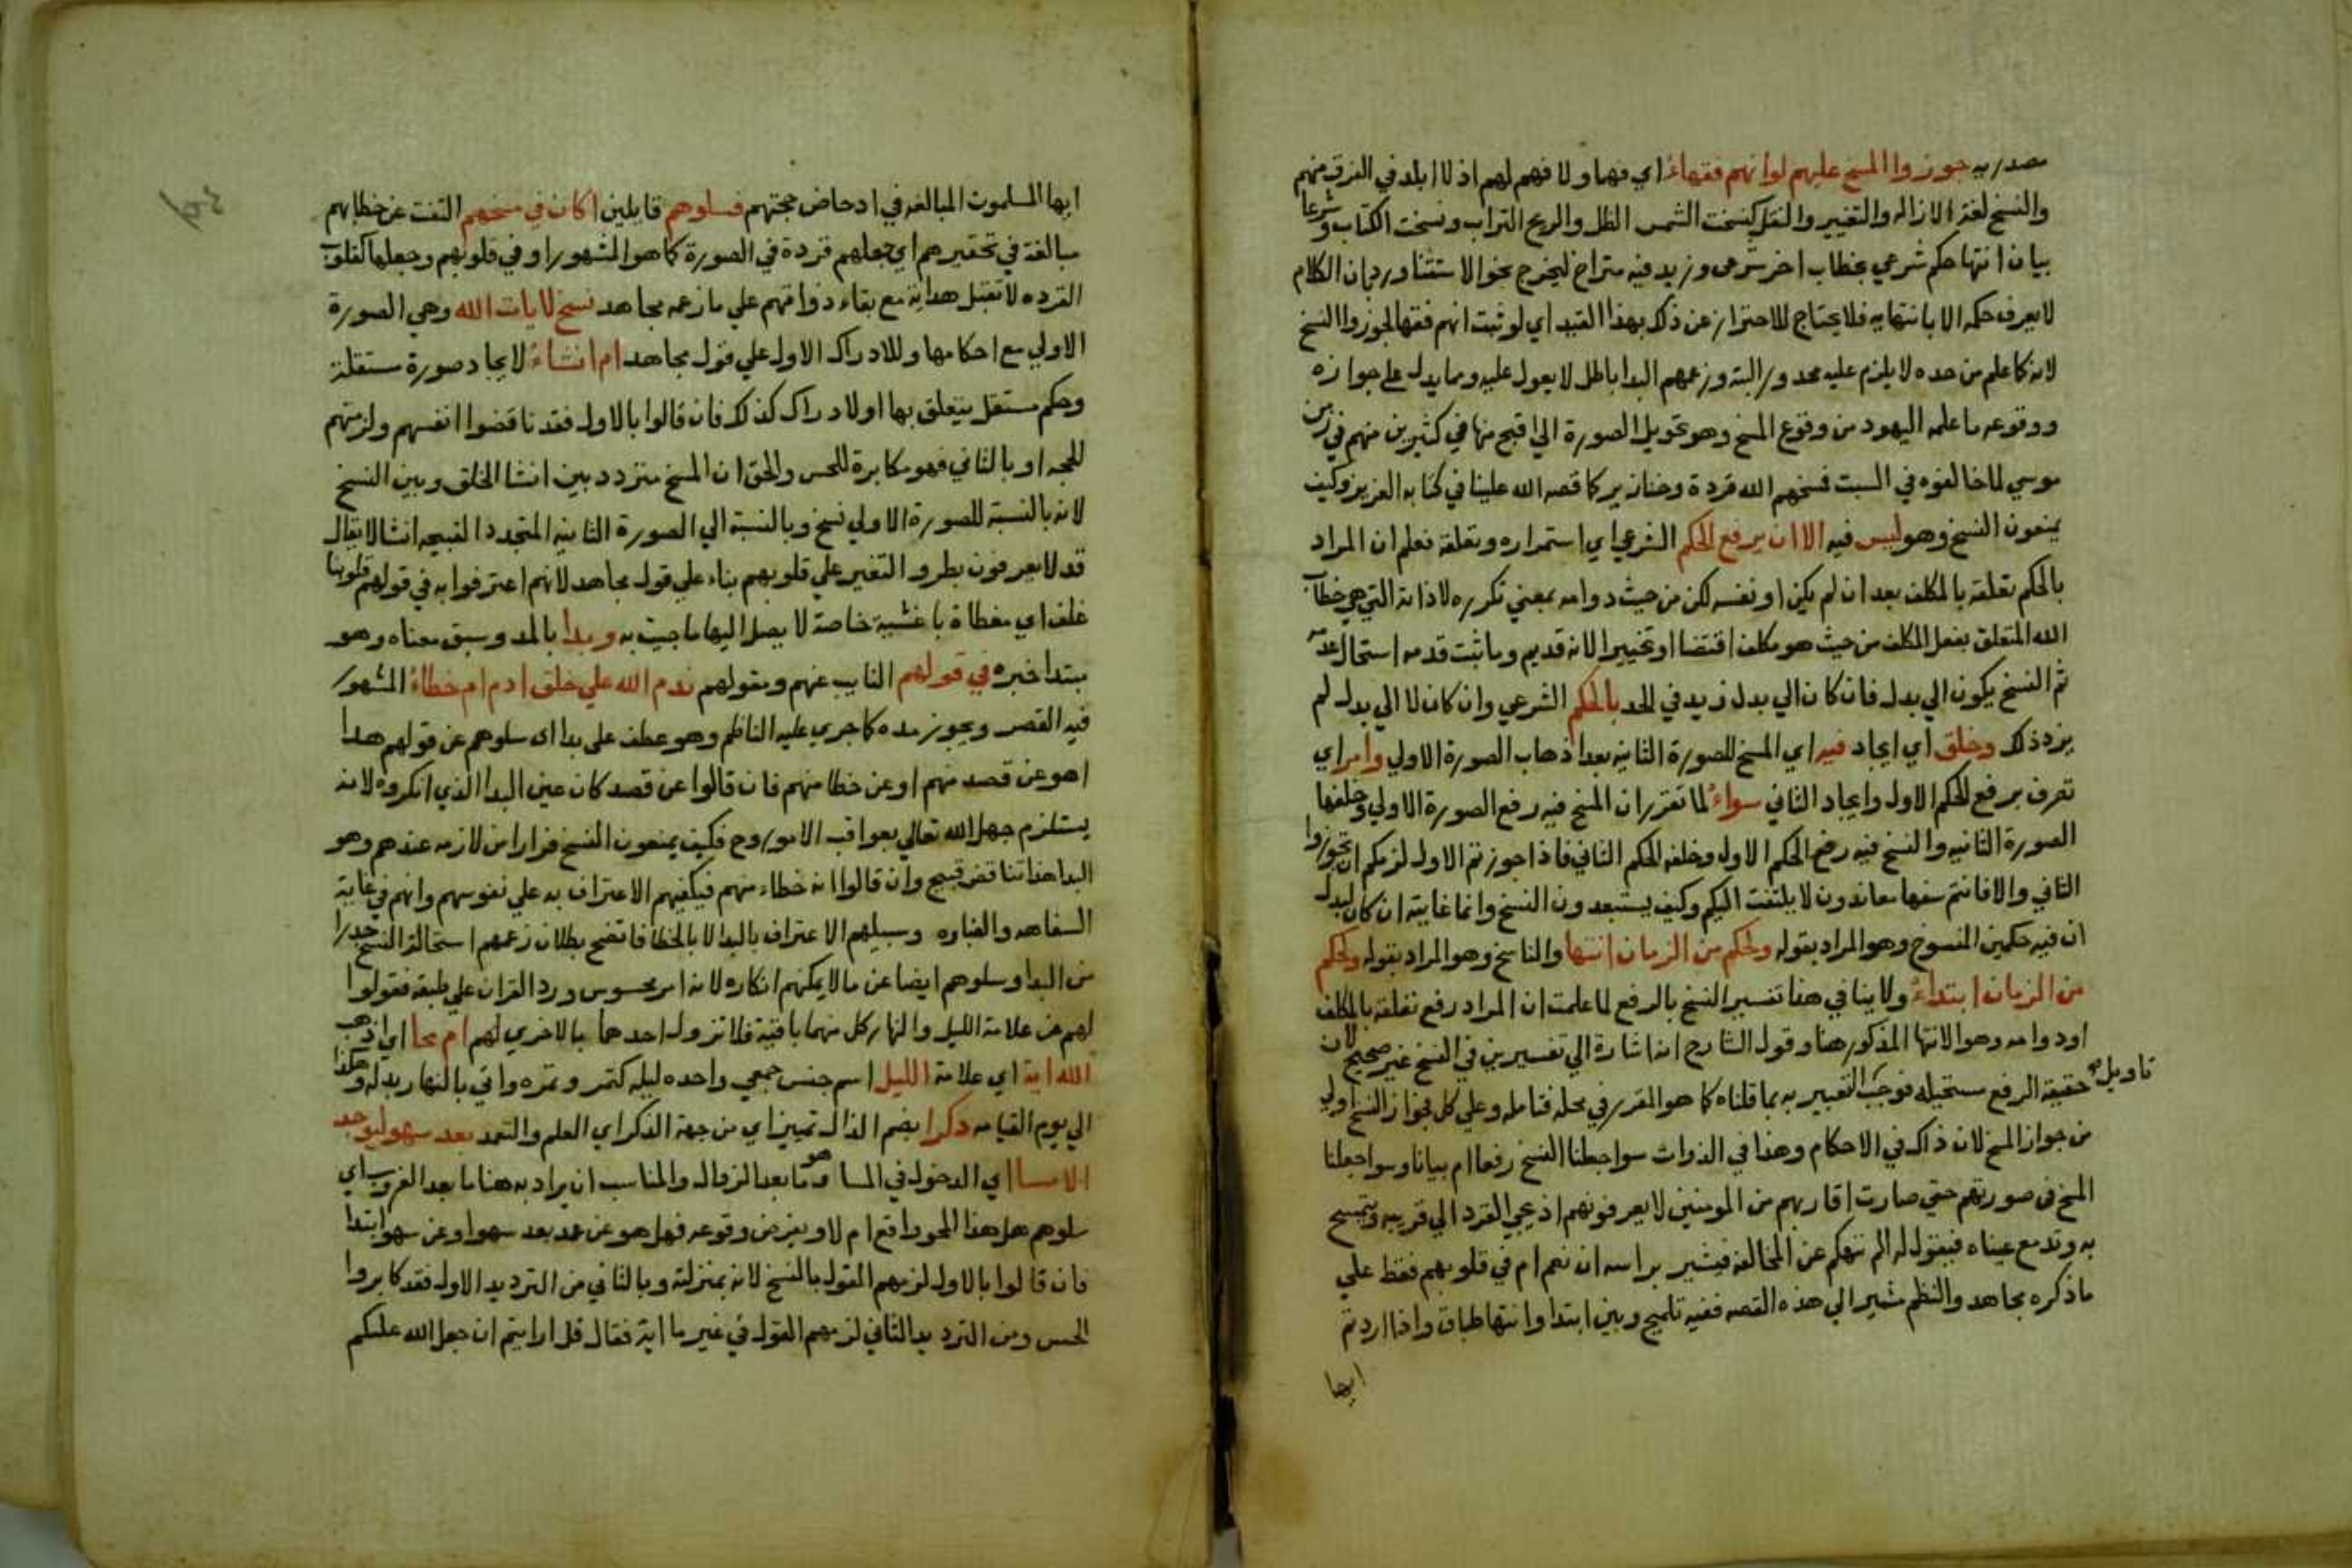 مصدريه جوزوا المسخ عليهم لوانهم فقهاءُ اي فهما ولا فهم لهم اذ لا ابلد في الفرق منهم
والنسخ لغة الازاله والتغيير والنقل كنسخت الشمس الظل والريح التراب ونسخت الكتاب وشرعا
بيان انتها حكم شرعي بخطاب اخر شرعى وزيد فيه متراخ ليخرج نحو الاستثنا ورد بان الكلام
لا يعرف حكمه الا بانتهايه فلا يحتاج للاحتراز عن ذلك بهذا القيد اي لو ثبت انهم فقها لجوزوا النسخ
لانه كما علم من حده لا يلزم عليه محدور البته وزعمهم البدا باطل لا يعول عليه ومما يدل على جوازه
ووقوعه ما علمه اليهود من وقوع المسخ وهو تحويل الصورة الى اقبح منها في كثيرين منهم في زمن
موسي لما خالفوه في السبت فمسخهم الله قردة وخنازير كما قصه الله علينا في كتابه العزيز وكيف
يمنعون النسخ وهو ليس فيه الا ان يرفع الحكم الشرعي اي استمراره وتعلقه فعلم ان المراد
بالحكم تعلقه بالمكلف بعد ان لم يكن او نفسه لكن من حيث دوامه بمعني تكرره لا ذاته التي هي خطاب
الله المتعلق بفعل المكلف من حيث هو مكلف اقتضا او تخييرا لانه قديم وما ثبت قدمه استحال عدمه
ثم النسخ يكون الي بدل فان كان الي بدل زيد في الحد بالحكم الشرعي وان كان لا الي بدل لم
يزد ذلك وخلق اي ايجاد فيه اي المسخ للصورة الثانية بعد اذهاب الصورة الاولي وامر اي
تعرف برفع الحكم الاول وايجاد الثاني سواءُ لما تقرر ان المسخ فيه رفع الصورة الاولي وخلفها
الصورة الثانيه والنسخ فيه رفع الحكم الاول وخلفه الحكم الثاني فاذا جوزتم الاول لزمكم ان تجوزوا
الثاني والا فانتم سفها معاندون لا يلتفت اليكم وكيف يستبعدون النسخ وانما غايته ان كان لبدل
ان فيه حكمين المنسوخ وهو المراد بقوله ولحكم من الزمان انتها والناسخ وهو المراد بقوله ولحكم
من الزمان ابتداءُ ولا ينافي هذا تفسير النسخ بالرفع لما علمت ان المراد رفع تعلقه بالمكلف
او دوامه وهو الانتها المذكور هنا وقول الشارح انه اشارة الي تفسيرين في النسخ غير صحيح لان
حقيقة الرفع مستحيله فوجب التعبير به بما قلناه كما هو المقرر في محله فتامله وعلي كل فجواز النسخ اولي
تاويل
من جواز المسخ لان ذاك في الاحكام وهذا في الذوات سوا جعلنا النسخ رفعا ام بيانا وسوا جعلنا
المسخ في صورتهم حتي صارت اقاربهم من المومنين لا يعرفونهم اذ يجي القرد الي قريبه ويتمسح
به وتدمع عيناه فيقول له الم ننهكم عن المخالفه فيشير براسه ان نعم ام في قلوبهم فقط علي
ما ذكره مجاهد والنظم مشير الي هذه القصه ففيه تلميح وبين ابتدا وانتها طباق واذا اردتم
ايها
ايها المسلمون المبالغه في ادحاض حجتهم فسلوهم قايلين اكان في مسخهم التفت عن خطابهم
مبالغة في تحقيرهم اي جعلهم قردة في الصورة كما هو المشهور او في قلوبهم وجعلها كقلوب
القرده لا تقبل هداية مع بقاء ذواتهم علي ما زعمه مجاهد نسخ لايات الله وهي الصورة
الاولي مع احكامها وللادراك الاول علي قول مجاهد ام انشاءُ لايجاد صورة مستقلة
وحكم مستقل يتعلق بها او لادراك كذلك فان قالوا بالاول فقد ناقضوا انفسهم ولزمتهم
الحجه او بالثاني فهو مكابرة للحس والحق ان المسخ متردد بين انشا الخلق وبين النسخ
لانه بالنسبة للصورة الاولي نسخ وبالنسبة الي الصورة الثانيه المتجدد القبيحه انشا لا يقال
قد لا يعرفون بطرو التغير علي قلوبهم بناء علي قول مجاهد لانهم اعترفوا به في قولهم قلوبنا
غلف اي مغطاة باغشية خاصة لا يصل اليها ما جيت به وبدا بالمد وسبق معناه وهو
مبتدا خبره في قولهم النايب عنهم ومقولهم ندم الله علي خلق ادم ام خطاءُ المشهور
فيه القصر ويجوز مده كما جري عليه الناظم وهو عطف علي بدا اي سلوهم عن قولهم هذا
اهو عن قصد منهم او عن خطا منهم فان قالوا عن قصد كان عين البدا الذي انكروه لانه
يستلزم جهل الله تعالي بعواقب الامور وح فكيف يمنعون النسخ فرارا من لازمه عندهم وهو
البدا هذا تناقض قبيح وان قالوا انه خطاء منهم فيكفيهم الاعتراف به علي نفوسهم وانهم في غاية
السفاهه والغباوه وسبيلهم الاعتراف بالبدا لا بالخطا فاتضح بطلان زعمهم استحالة النسخ حذرا
من البدا وسلوهم ايضا عن ما لا يمكنهم انكاره لانه امر محسوس ورد القران علي طبقه فقولوا
لهم عن علامة الليل والنهار كل منهما باقية فلا تزول احدهما بالاخري لهم ام محا اي اذهب
الله اية اي علامة الليل اسم جنس جمعي واحده ليله كتمر وتمره واتي بالنهار بدله وهكذا
الي يوم القيامه ذكرا بضم الذال تمييز اي من جهة الذكر اي العلم والتعمد بعد سهو ليوجد
الامسا اي الدخول في المسا وهو ما بعد الزوال والمناسب ان يراد به هنا ما بعد الغروب اي
سلوهم هل هذا المحو واقع ام لا وبفرض وقوعه فهل هو عن عمد بعد سهو او عن سهو ابتدا
فان قالوا بالاول لزمهم القول بالنسخ لانه بمنزلته وبالثاني من الترديد الاول فقد كابروا
الحس ومن الترديد الثاني لزمهم القول في غير ما اية فقال قل ارايتم ان جعل الله عليكم